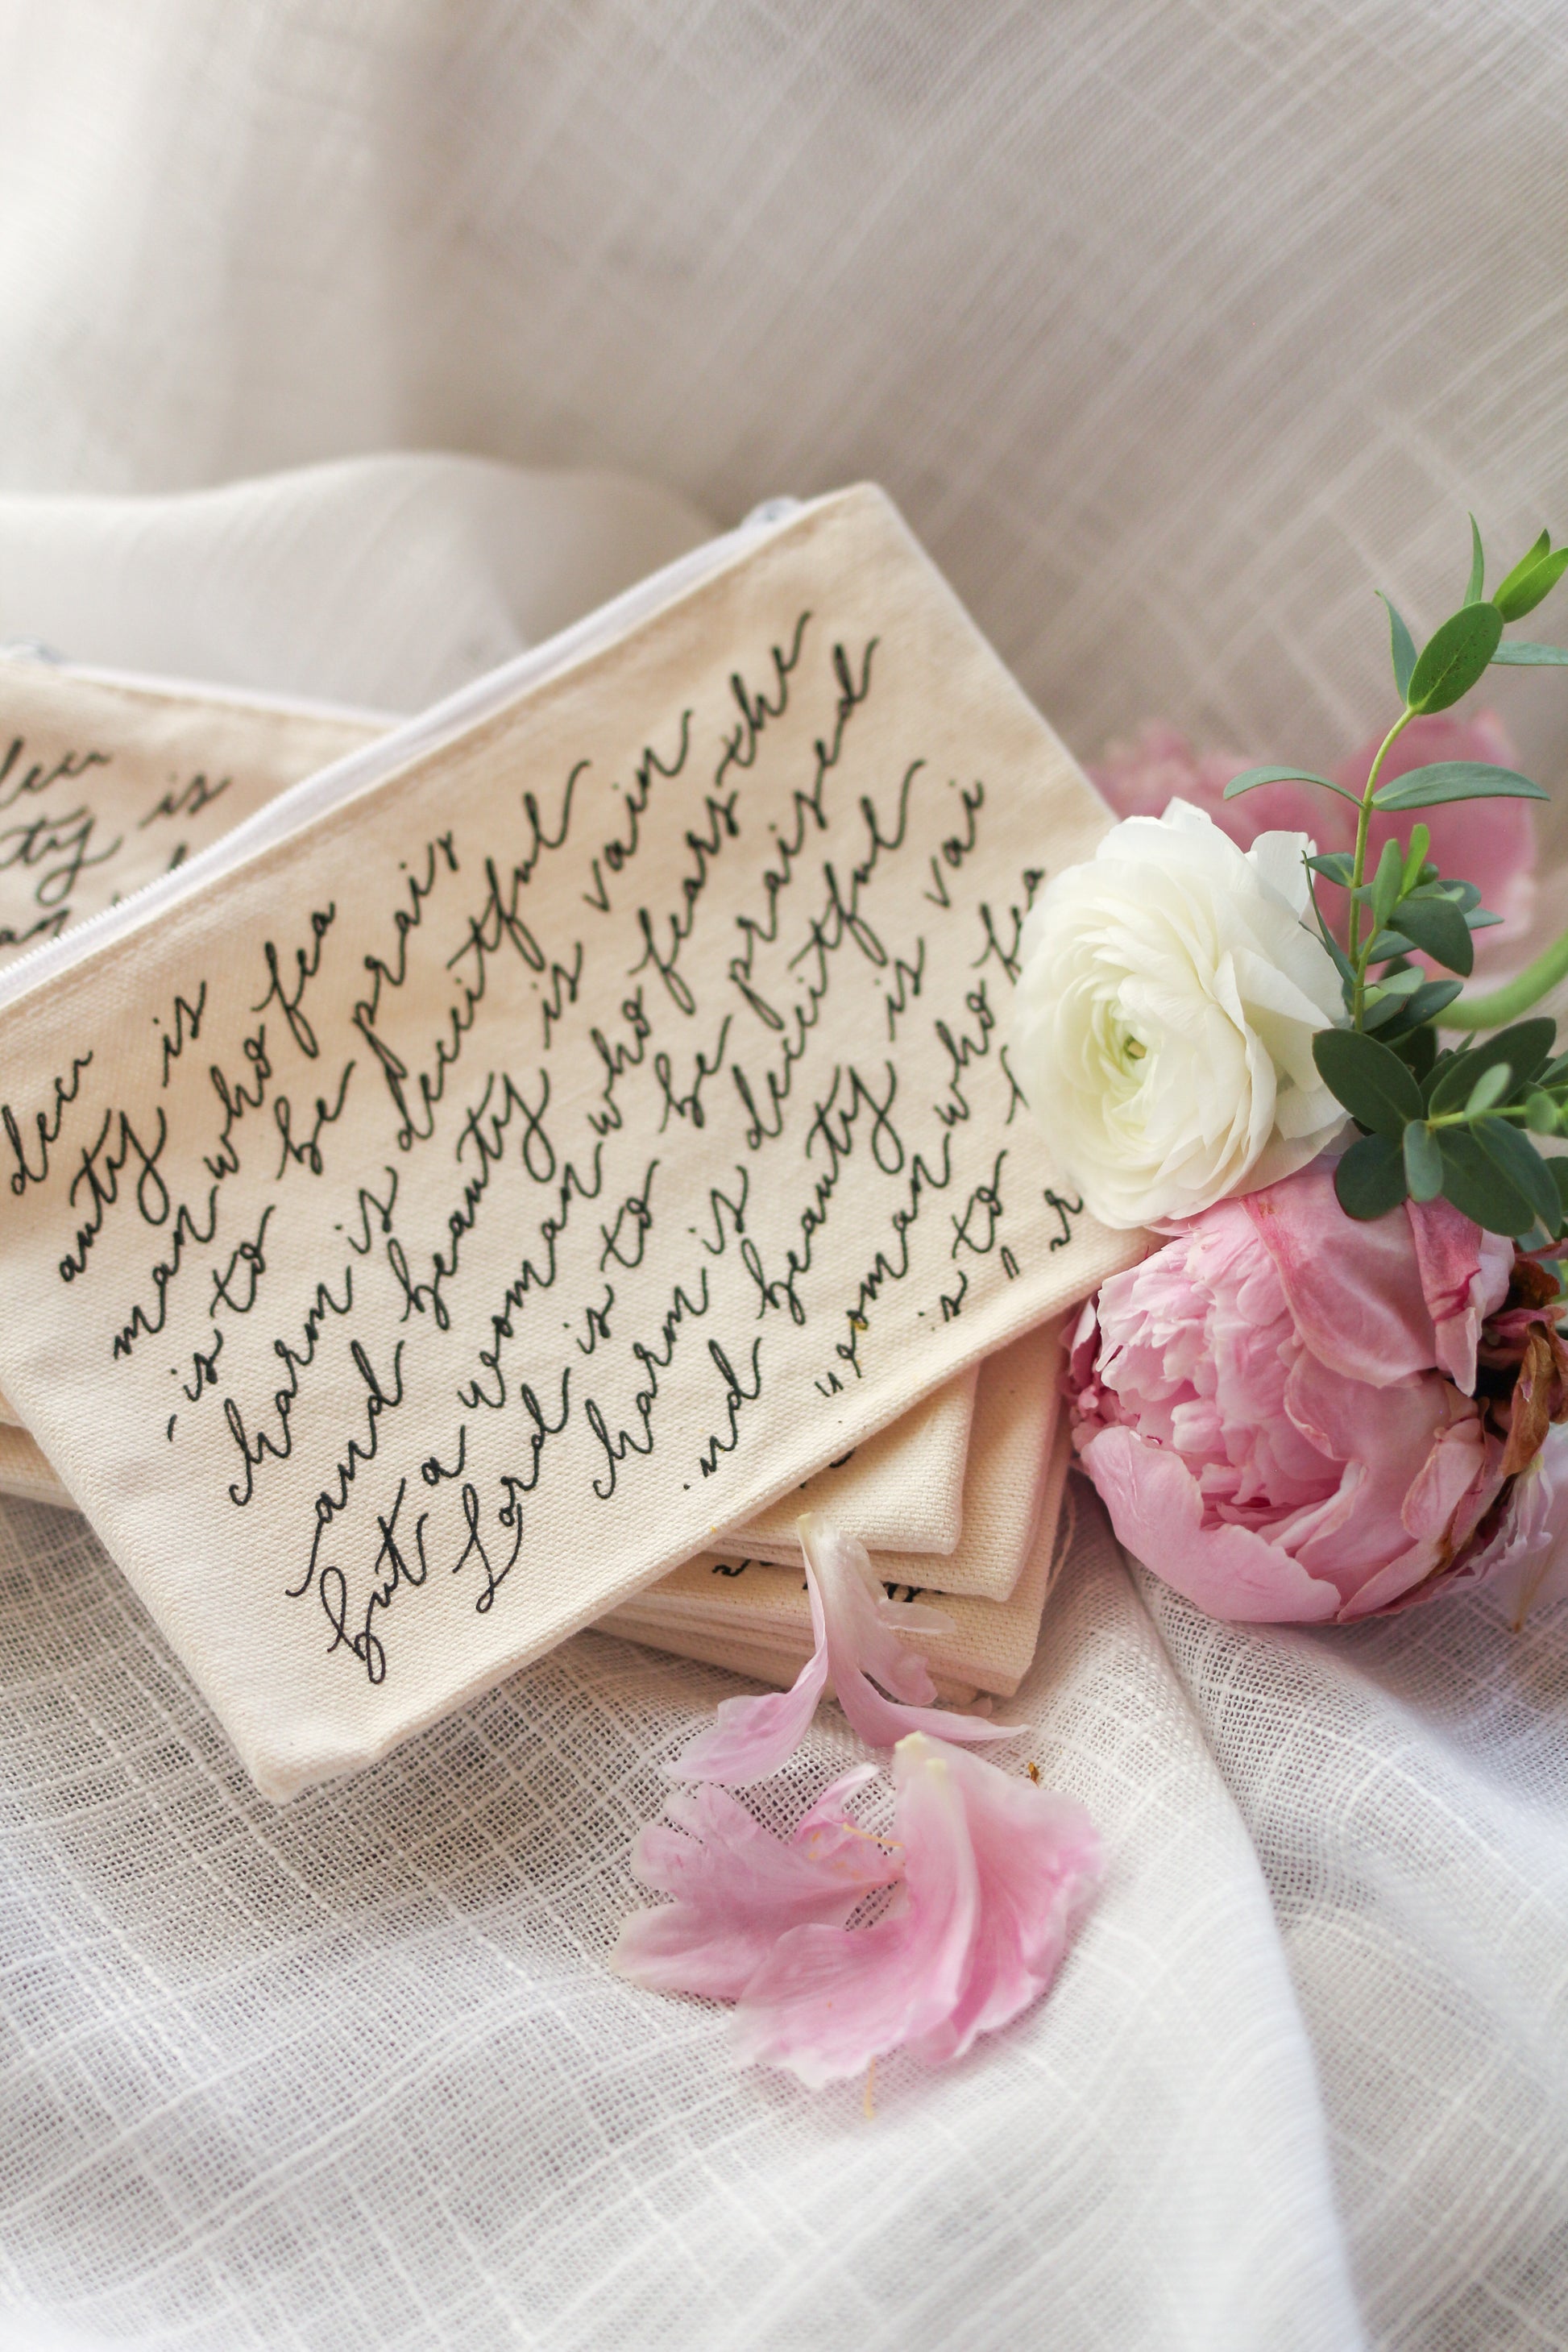 ty is
dece
auty is
man who fea
is to be prais
charm is deceitful
and beauty is vain
but a woman who fears the
Lord is to be praised
charm is deceitful
nd beauty is vai
woman who fea
is to